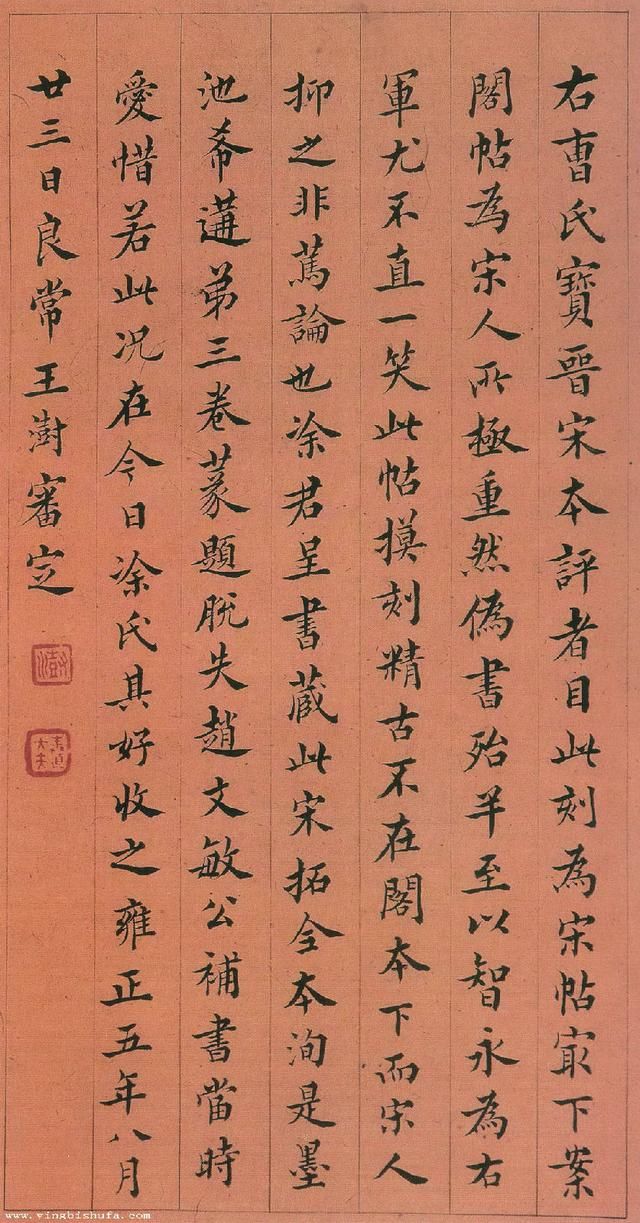 右曹氏寶晉宋本評者目此刻為宋帖㝡下案
閣帖為宋人所極重然偽書殆半至以智永為右
軍尤不直一笑此帖摸刻精古不在閣本下而宋人
抑之非篤論也涂君呈書蔵此宋拓全本洵是墨
池希遘弟三卷篆題脫失趙文敏公補書當時
愛惜若此况在今日涂氏其好收之雍正五年八月
廿三日良常王澍審定
澍
www.yingbishufa.com